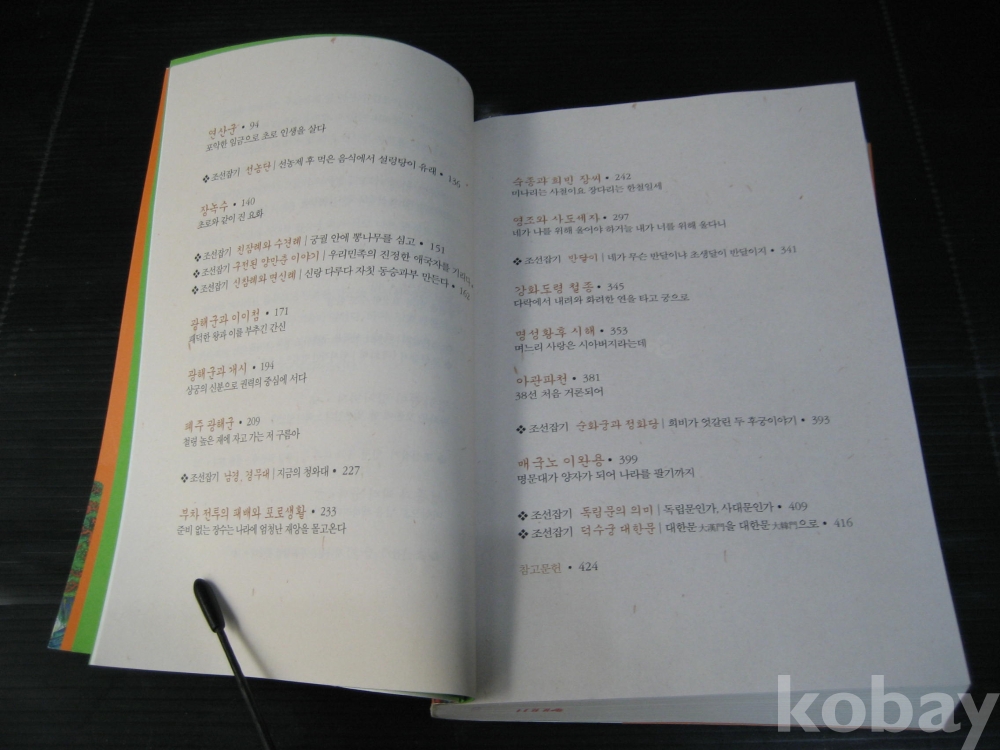 연산군 • 94
포악한 임금으로 초로 인생을 살다
❖ 조선잡기 선농탄 | 선농제 후 먹은 음식에서 설렁탕이 유래 • 136
장녹수 • 140
초로와 같이 진 요화
❖ 조선잡기 친잠례와 수견례 | 궁궐 안에 뽕나무를 심고 • 151
❖ 조선잡기 구전된 양만춘 이야기 | 우리민족의 진정한 애국자를
❖ 조선잡기 신참례와 면신례 | 신랑 다루다 자칫 동승과부 만든다 •
광해군과 이이첨 • 171
패덕한 왕과 이를 부추긴 간신
광해군과 개시 • 194
상궁의 신분으로 권력의 중심에 서다
폐주 광해군 • 209
철령 높은 재에 자고 가는 저 구름아
❖ 조선잡기 남경, 경무대 | 지금의 청와대 • 227
부차 전투의 패배와 포로생활 • 233
준비 없는 장수는 나라에 엄청난 재앙을 몰고온다
숙종과 희빈 장씨 • 242
미나리는 사철이요 장다리는 한철일세
영조와 사도세자 • 297
네가 나를 위해 울어야 하거늘 내가 너를 위해 울다니
❖ 조선잡기 반달이 | 네가 무슨 반달이냐 초생달이 반달이지 • 341
강화도령 철종 • 345
다락에서 내려와 화려한 연을 타고 궁으로
명성황후 시해 • 353
며느리 사랑은 시아버지라는데
아관파천 • 381
38선 처음 거론되어
❖ 조선잡기 순화군과 정화당 | 희비가 엇갈린 두 후궁이야기 • 393
매국노 이완용 • 399
명문대가 양자가 되어 나라를 팔기까지
❖ 조선잡기 독립문의 의미 | 독립문인가, 사대문인가 • 409
❖ 조선잡기 덕수궁 대한문 | 대한문 大漢門을 대한문 으로 • 416
참고문헌 • 424
kobay